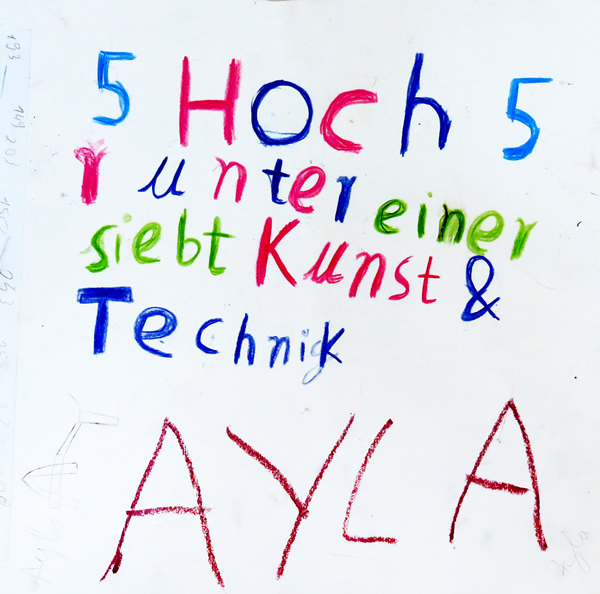 5 Hoch 5
runter einer
siebt Kunst &
Technik
AYLA